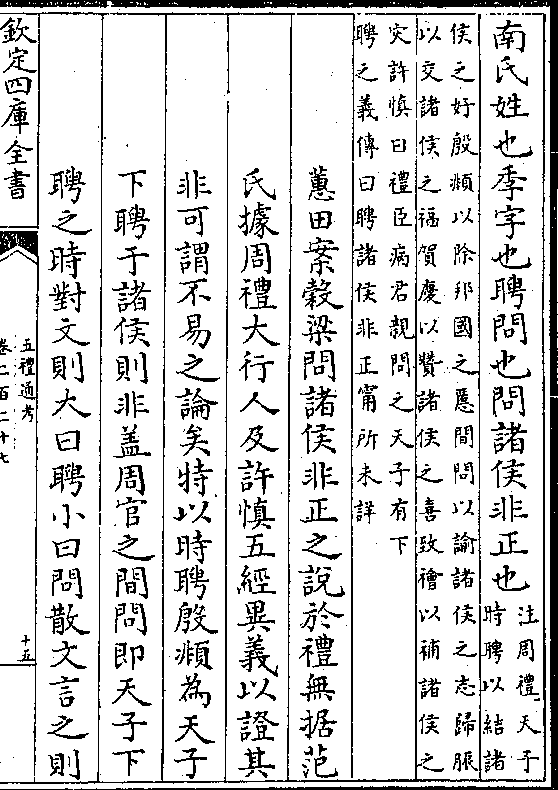 南氏姓也季字也聘問也問諸侯非正也
注周禮天子
時聘以結諸
侯之好殷頫以除邦國之慝間問以諭諸侯之志歸脤
以交諸侯之福賀慶以贊諸侯之喜致禬以補諸侯之
灾許慎曰禮臣病君親問之天子有下
聘之義傳曰聘諸侯非正甯所未詳
蕙田案穀梁問諸侯非正之說於禮無据范
氏據周禮大行人及許慎五經異義以證其
非可謂不易之論矣特以時聘殷頫為天子
下聘于諸侯則非盖周官之間問即天子下
聘之時對文則大曰聘小曰問散文言之則
欽定四庫全書
五禮通考
卷二百二十七
十五